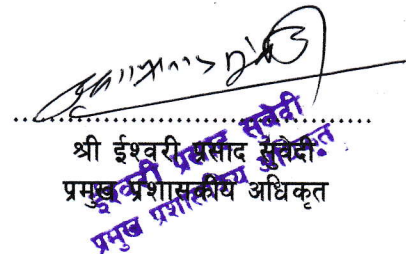 श्री ईश्वरी प्रसाद सुवेदी
प्रमुख प्रशासकीय अधिकृत
ईश्वरी प्रसाद सुवेदी
प्रमुख प्रशासकीय अधिकृत